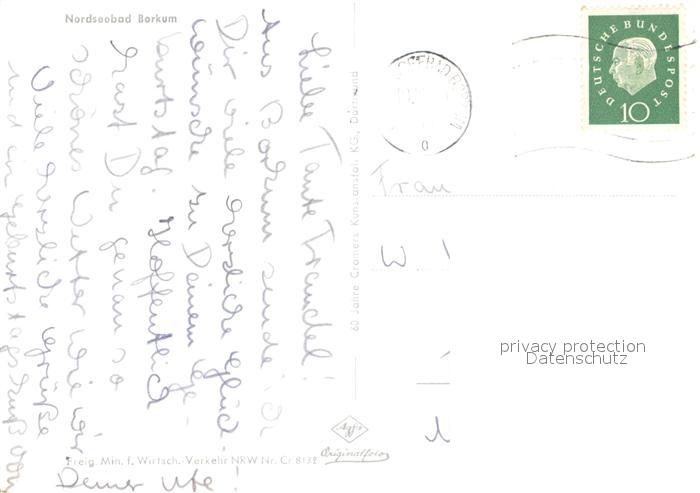 Nordseebad Borkum
Liebe Tante Traudel!
Aus Borkum sende ich
Dir viele herzliche Glück-
wünsche zu Deinem Ge-
burtstag. Hoffentlich
hast Du genau so
schönes Wetter wie wir.
Viele herzliche Grüße
und ein Geburtstagskuß von
Deiner Ute!
Freig. Min. f. Wirtsch.-Verkehr NRW Nr. Cr 8132
60 Jahre Cramers Kunstanstalt KG., Dortmund
Agfa
Originalfoto
DEUTSCHE BUNDESPOST
10
Frau
W
privacy protection
Datenschutz